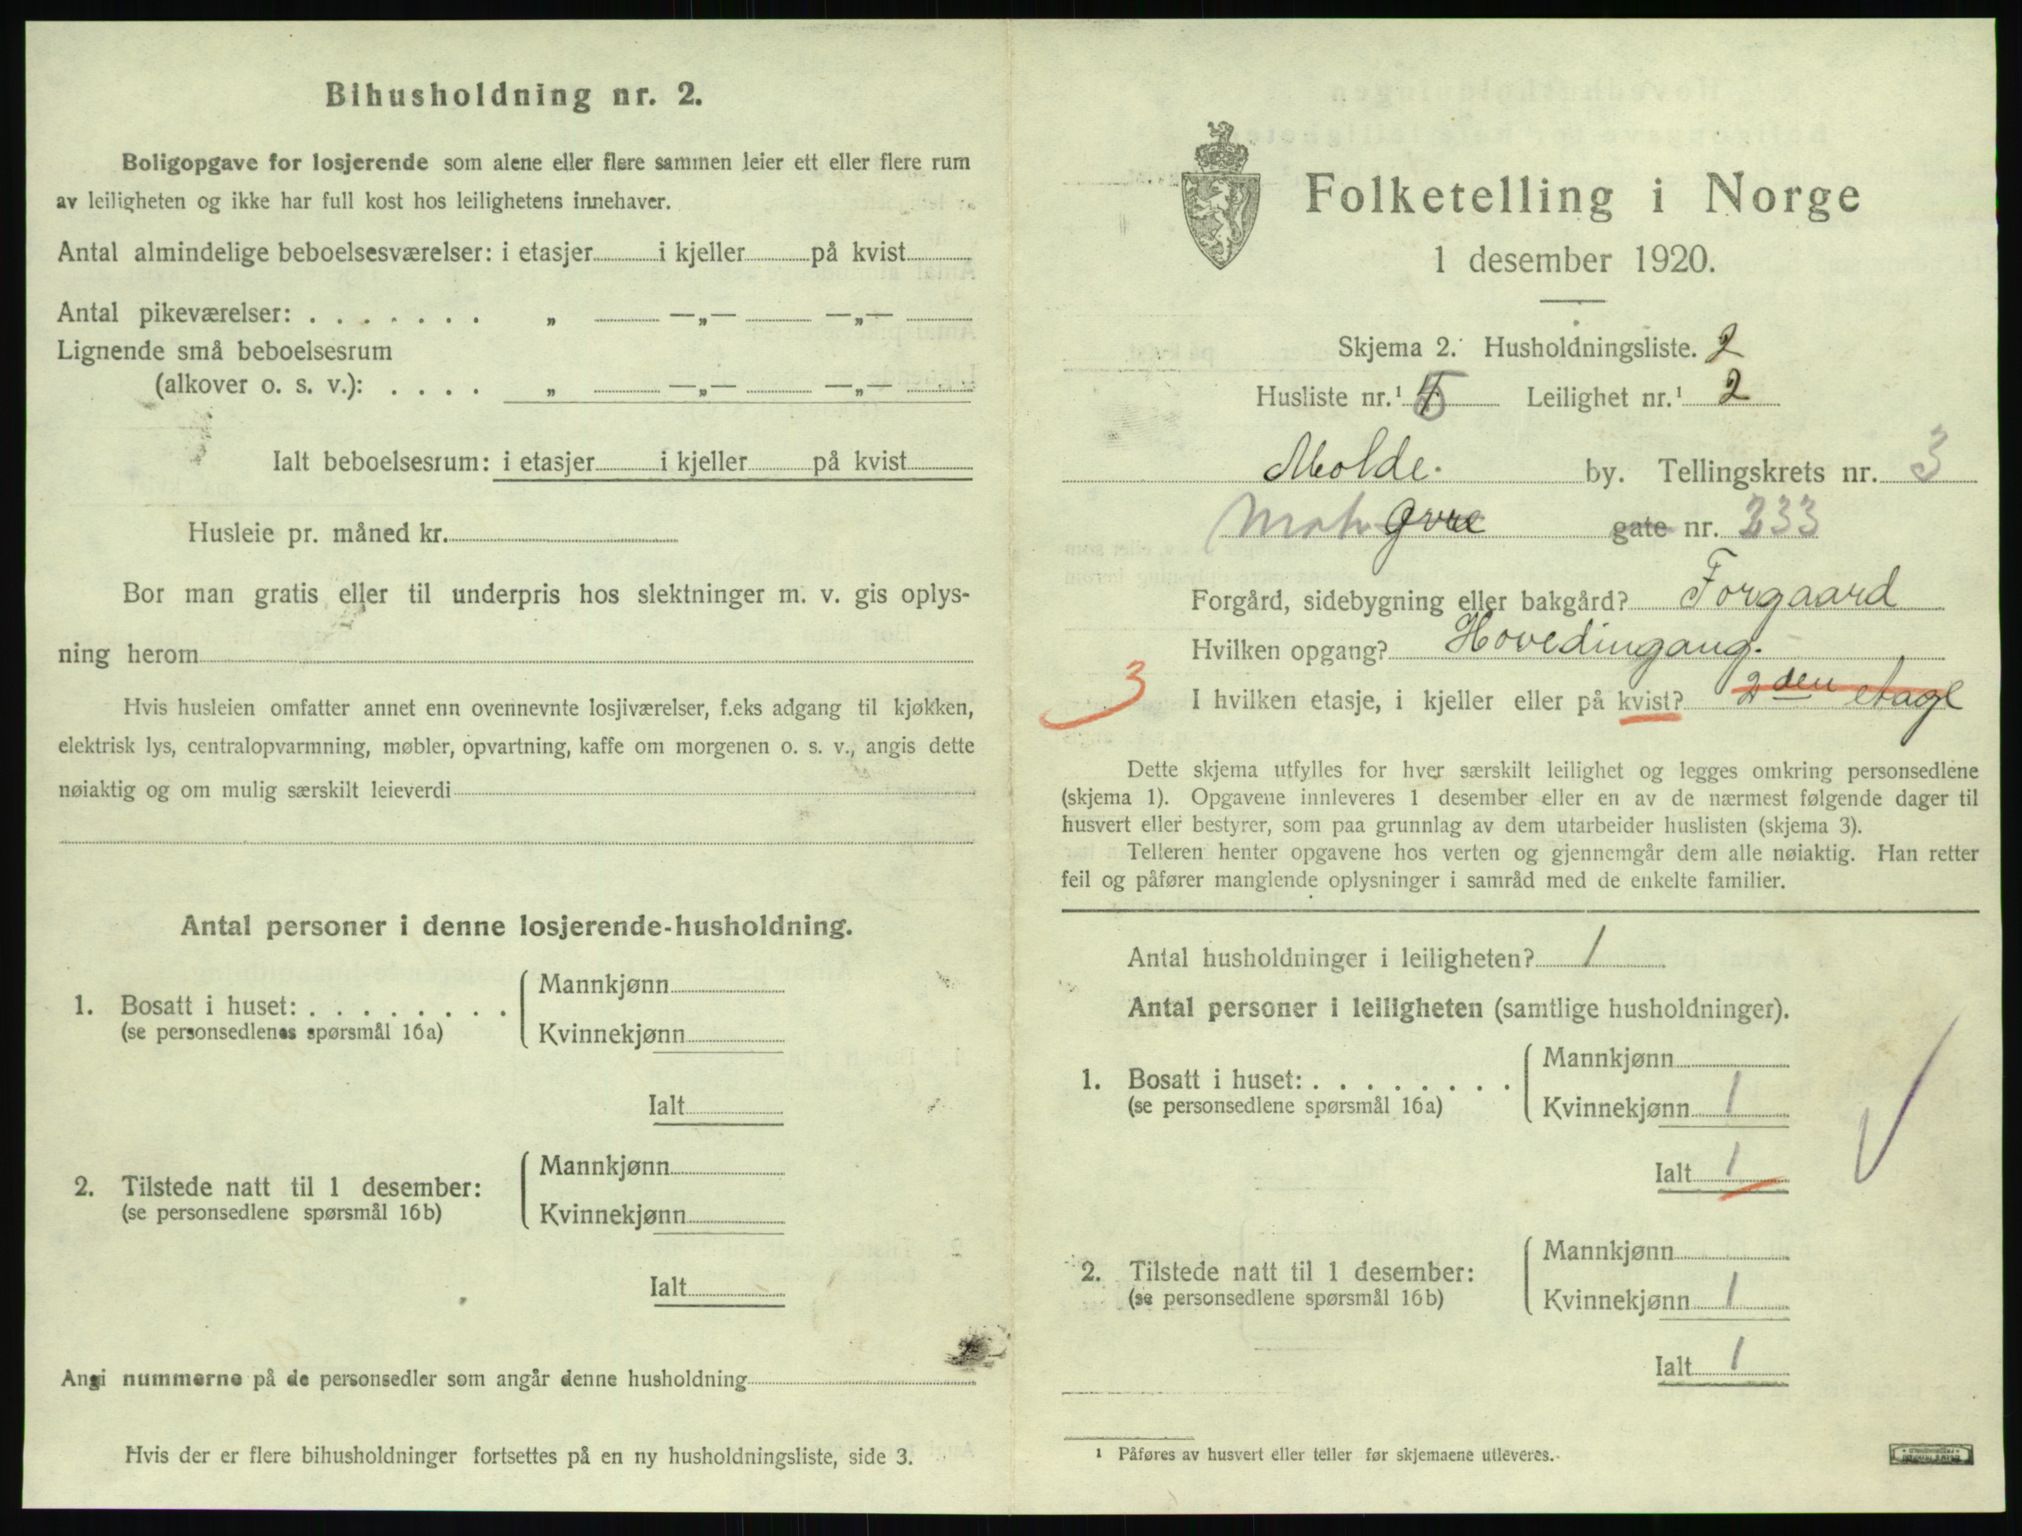 Bihusholdning nr. 2.
Boligopgave for losjerende som alene eller flere sammen leier ett eller flere rum
av leiligheten og ikke har full kost hos leilighetens innehaver.
Antal almindelige beboelsesværelser: i etasjer i kjeller på kvist
Antal pikeværelser: . . . . . . . „ —„— —„—
Lignende små beboelsesrum
(alkover o. s. v.): . . . . „ —„— —„—
Ialt beboelsesrum: i etasjer i kjeller på kvist
Husleie pr. måned kr.
Bor man gratis eller til underpris hos slektninger m. v. gis oplys-
ning herom
Hvis husleien omfatter annet enn ovennevnte losjiværelser, f.eks adgang til kjøkken,
elektrisk lys, centralopvarmning, møbler, opvartning, kaffe om morgenen o. s. v., angis dette
nøiaktig og om mulig særskilt leieverdi
Antal personer i denne losjerende-husholdning.
1. Bosatt i huset: . . . . . . . . Mannkjønn
(se personsedlenes spørsmål 16a) Kvinnekjønn
Ialt
2. Tilstede natt til 1 desember: Mannkjønn
(se personsedlene spørsmål 16b) Kvinnekjønn
Ialt
Angi nummerne på de personsedler som angår denne husholdning
Hvis der er flere bihusholdninger fortsettes på en ny husholdningsliste, side 3.
Folketelling i Norge
1 desember 1920.
Skjema 2. Husholdningsliste. 2
Husliste nr.¹ 5 Leilighet nr.¹ 2
Molde. by. Tellingskrets nr. 3
Øvre gate nr. 233
Forgård, sidebygning eller bakgård? Forgaard
Hvilken opgang? Hovedingang.
3 I hvilken etasje, i kjeller eller på kvist? 2den etage
Dette skjema utfylles for hver særskilt leilighet og legges omkring personsedlene
(skjema 1). Opgavene innleveres 1 desember eller en av de nærmest følgende dager til
husvert eller bestyrer, som paa grunnlag av dem utarbeider huslisten (skjema 3).
Telleren henter opgavene hos verten og gjennemgår dem alle nøiaktig. Han retter
feil og påfører manglende oplysninger i samråd med de enkelte familier.
Antal husholdninger i leiligheten? 1
Antal personer i leiligheten (samtlige husholdninger).
1. Bosatt i huset: . . . . . . . . Mannkjønn
(se personsedlene spørsmål 16a) Kvinnekjønn 1
Ialt 1
2. Tilstede natt til 1 desember: Mannkjønn
(se personsedlene spørsmål 16b) Kvinnekjønn 1
Ialt 1
¹ Påføres av husvert eller teller før skjemaene utleveres.